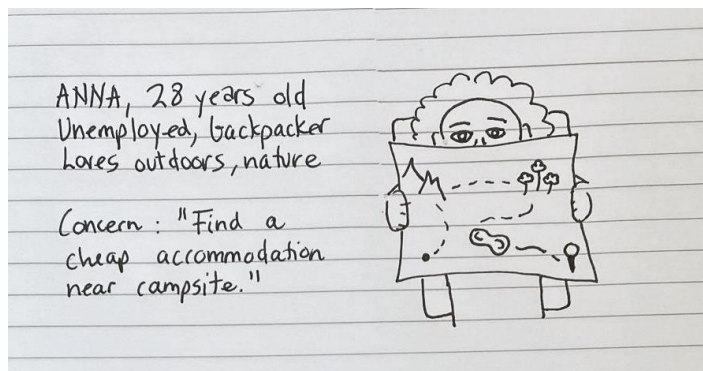 ANNA, 28 years old
Unemployed, backpacker
Loves outdoors, nature
Concern : "Find a
cheap accommodation
near campsite."